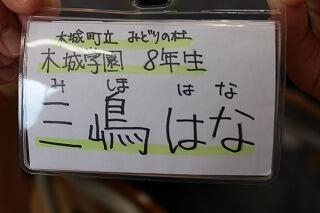 木城町立 みどりの杜
木城学園 8年生
み しま は な
三嶋 はな